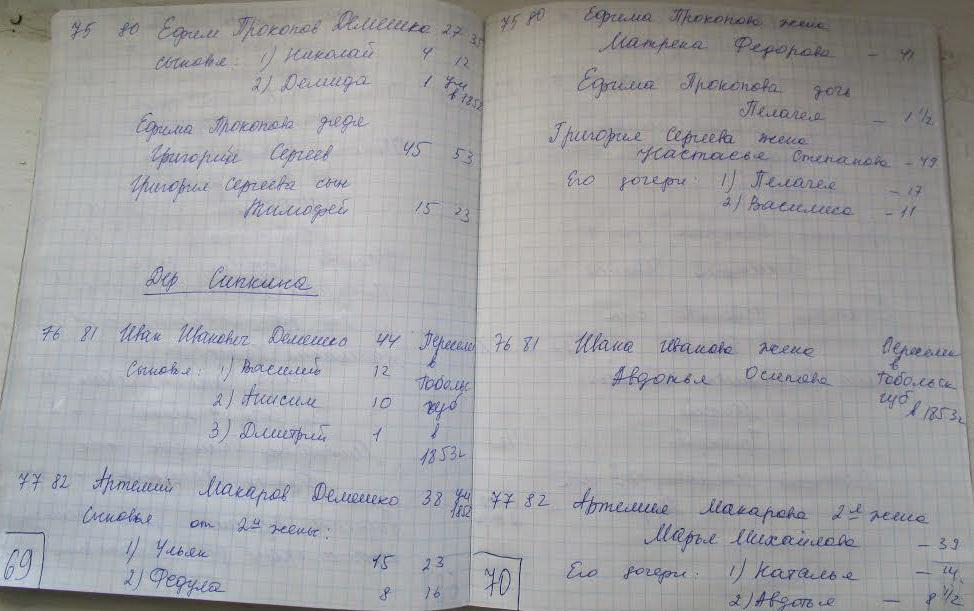 75 80 Ефим Прокопов Демешко 27 35
сыновья: 1) Николай 4 12
2) Демида 1 ум в 1852
Ефима Прокопова дядя
Григорий Сергеев 45 53
Григория Сергеева сын
Тимофей 15 23
Дер Сипкина
76 81 Иван Иванович Демешко 44 Пересел
сыновья: 1) Василий 12 в Тоболь
2) Анисим 10 губ
3) Дмитрий 1 в
1853г
77 82 Артемий Макаров Демешко 38 ум 1852
Сыновья от 2й жены:
1) Ульян 15 23
2) Федула 8 16
69
75 80 Ефима Прокопова жена
Матрена Федорова – 41
Ефима Прокопова дочь
Пелагея – 1 1/2
Григория Сергеева жена
Настасья Степанова – 49
Его дочери: 1) Пелагея – 17
2) Василиса – 11
76 81 Ивана Иванова жена Переселен
в
Авдотья Осипова Тобольск
губ
в 1853г
77 82 Артемия Макарова 2я жена
Марья Михайлова – 39
Его дочери: 1) Наталья – 14
2) Авдотья – 8 1/2
70